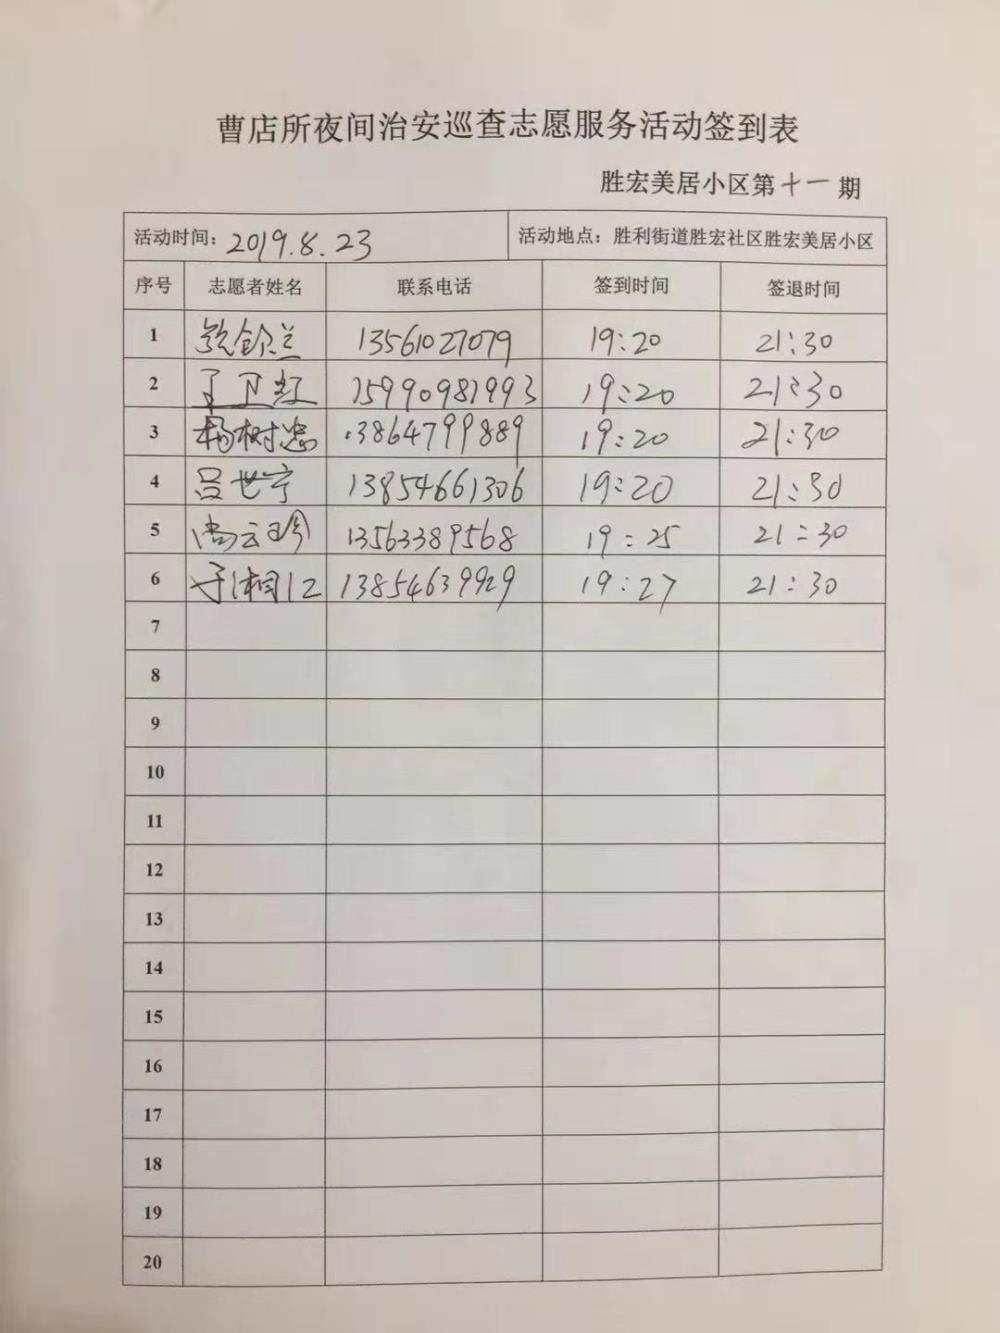 曹店所夜间治安巡查志愿服务活动签到表
胜宏美居小区第十一期
活动时间：2019.8.23 活动地点：胜利街道胜宏社区胜宏美居小区
序号 志愿者姓名 联系电话 签到时间 签退时间
1 张钦兰 13561027079 19:20 21:30
2 卫红 15990981993 19:20 21:30
3 杨树忠 13864799889 19:20 21:30
4 吕世宁 13854661306 19:20 21:30
5 尚云珍 13563389568 19:25 21:30
6 于湘江 13854639929 19:27 21:30
7
8
9
10
11
12
13
14
15
16
17
18
19
20